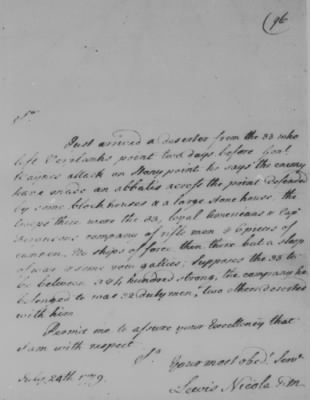 (96
Sr.
Just arrived a deserter from the 33 who
left Verplanks point two days before Genl
Waynes attack on Stony point he says the enemy
have made an abbatis across the point defended
by some block houses & a large stone house, the
troops there were the 33, loyal Americans & Capt
Fergusons company of rifle men & 6 pieces of
cannon. No ships of force then there but a sloop
of war & some row galies, Supposes the 33 to
be between 3 & 4 hundred strong, the company he
belonged to was 32 duty men, two others deserted
with him
Permit me to assure your Excellency that
I am with respect
Sr.
Your most obedt. Servt.
Lewis Nicola
July 24th 1779.